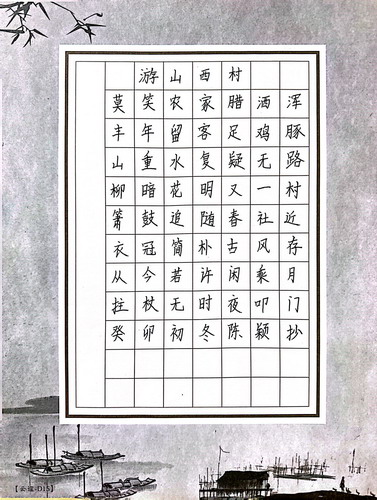 游山西村
莫笑农家腊酒浑
丰年留客足鸡豚
山重水复疑无路
柳暗花明又一村
箫鼓追随春社近
衣冠简朴古风存
从今若许闲乘月
拄杖无时夜叩门
癸卯初冬陈颖抄